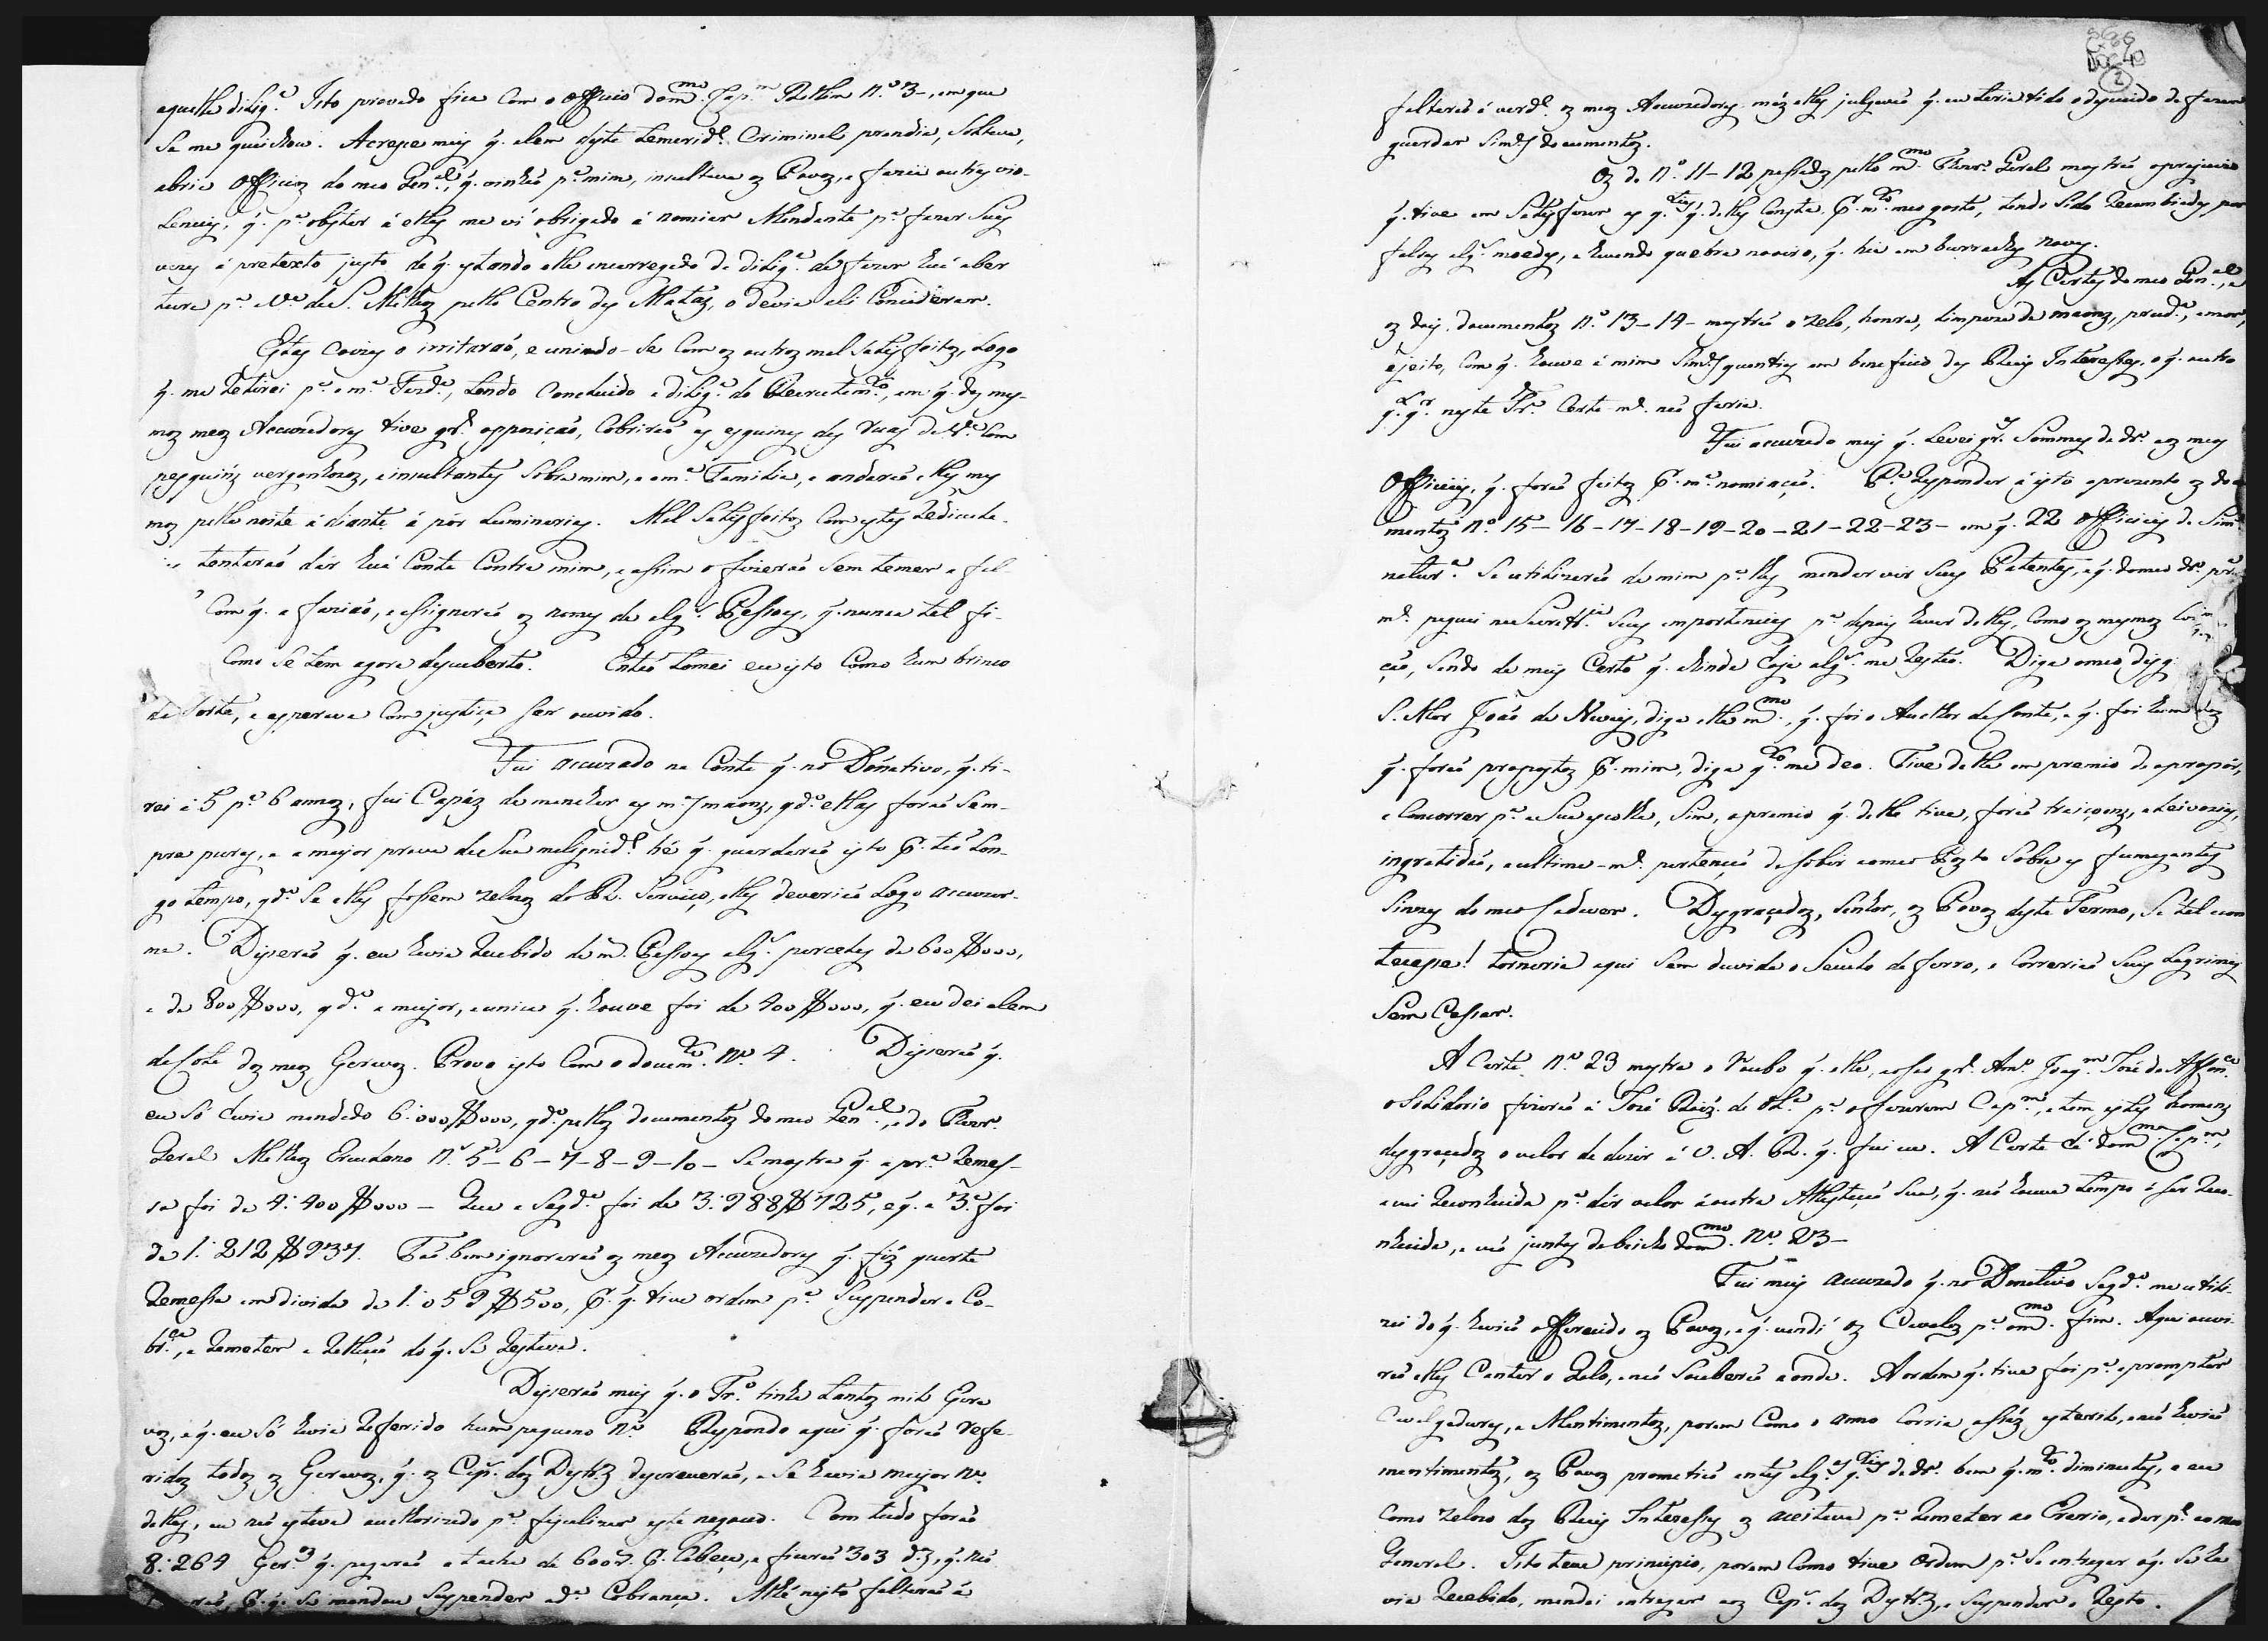 aquella dilig.ª Isto provado fica com o Officio do m.mo Cap.m Rollim N.º 3-, em que
se me queixou. Acresce mais q̃. alem desta temerid.e Criminal prendia, soltava,
abria Officios do meo Gen.al, q̃. vinhão p.ª mim, insultava os Povos, e fazia outras vio-
lencias, q̃. p.ª obstar á ellas me vi obrigado á nomiar Mandante p.ª fazer suas
vezes á pretexto justo de q̃. estando elle encarregado da dilig.ª de fazer huã aber
tura p.ª V.ª de S. Matheos pello Centro das Matas, o devia ali Considerar.
Estas Coizas o irritaraó, e unindo-se com os outros mal satisfeitos, logo
q̃. me retirei p.ª a m.ª Fazd.ª, tendo concluido a dilig.ª do Recrutam.to, em q̃. dos mes-
mos meos Accuzadores tive gr.e oppoziçaó, Cobriraó as esquinas das ruas da V.ª com
pasquins vergonhozos, e insultantes sobre mim, e a m.ª Familia, e andaraó elles mes
mos pella noite á diante á pôr Luminarias. Mal satisfeitos com estes
tentaraó dár huã Conta Contra mim, e assim o fizeraó sem temer a fal-
Com q̃. a faziaó, e assignaraó os nomes de alg.s Pessoas, q̃. nunca tal fi-
Como se tem agora descuberto. Então tomei eu isto como hum brinco
da sorte, e esperava com justiça ser ouvido.
Fui accuzado na Conta q̃. no Donativo, q̃. ti-
rei á 5 p.ª 6 annos, fui Capáz de manchar as m.s maons, qd.º ellas foraó sem-
pre puras, e a maior prova de sua malignid.e hé q̃. guardaraó isto P. taó lon-
go tempo, qd.º se elles fossem zelosos do R. Serviço, elles deveriaó logo accuzar-
me. Disseraó q̃. eu havia recebido de m.s Pessoas alg.s parcelas de 600$000,
e de 800$000, qd.º a maior, e unica q̃. houve foi de 400$000, q̃. eu dei alem
da Cota dos meos Escravos. Provo isto com o docum.to N.º 4. Disseraó q̃.
eu só havia mandado 6:000$000, qd.º pellos documentos do meo Gen.al, e do Thezr.
Geral Matheos N.º 5-6-7-8-9-10- se mostra q̃. a pr.ª remes-
sa foi de 4:400$000 - Que a segd.ª foi de 3:988$725, e q̃. a 3.ª foi
de 1:212$937. Taó bem ignoraraó os meos Accuzadores q̃. fiz quarta
remessa em divida de 1:059$500, P. q̃. tive ordem p.ª suspender a Co-
br.ça, e remeter a rellaçaó do q̃. se restava.
Disseraó mais q̃. o Tr.º tinha tantos mil Escra
vos, e q̃. eu só havia referido hum pequeno N.º Respondo aqui q̃. foraó refe-
ridos todos os Escravos, q̃. os Cap.s dos Distr.s descreveraó, e se havia maior N.º
delles, eu naó estava auctorizado p.ª fiscalizar este negocio. Com tudo foraó
8:264 Escr.os q̃. pagaraó a tacha de 600r. P. Cabeça, e ficaraó 303 d.s, q̃. naó
P. q̃. se mandou suspender a d.ª Cobrança. Athé nisto faltaraó á
faltaraó á verd.e os meos Accuzadores mas elles julgavaó q̃. eu teria tido o descuido de fazer
guardar sim.es documentos.
Os de N.º 11-12 passados pello m.mo Thezr. Geral mostraó o prejuizo
q̃. tive em satisfazer as q.tias q̃. delles consta P. m.to meo gosto, tendo sido recambiadas por
falsas alg.s moedas, e havendo quebra no oiro, q̃. hia em barras.
As Cartas do meo Gen.al, e
os dois documentos N.º 13-14- mostraó o zelo, honra, limpeza de maons, prud.ª, amor,
e geito, com q̃. houve á mim sim.es quantias em beneficio dos Reais Interesses, o q̃. outro
q.l q.r neste Tr.º Certa m.e naó faria.
Fui accuzado mais q̃. levei gr.s sommas de dr.º aos meos
Officiaes, q̃. foraó feitos P. m.ª nomiaçaó. P.ª responder á isto aprezento os docu
mentos N.º 15-16-17-18-19-20-21-22-23- em q̃. 22 Officiaes de sim.e
natur.ª se utilizaraó de mim p.ª lhes mandar vir suas Patentes, e q̃. do meo dr.º
m.e paguei na Secret.ria suas importancias p.ª depois haver delles, como os mesmos
çaó, sendo de mais Certo q̃. ainda hoje alg.s me restaó. Diga o meo
S. Mor Joaó de diga elle m.mo, q̃. foi o Auctor da Conta, e q̃. foi hum dos
q̃. foraó propostos P. mim, diga q.to me deo. Tive delle em premio de o propôr,
e Concorrer p.ª a sua escolha, sim, o premio q̃. delle tive, foraó traiçoens, aleivozias,
ingratidaó, e ultima-m.e pertençaó de sobir ao meo Posto sobre as fumegantes
sinzas do meo Cadaver. Desgraçados, Senhor, os Povos deste Termo, se tal acon
tecesse! tornaria aqui sem duvida o Seculo de ferro, e correriaó suas Lagrimas
sem cessar.
A Carta N.º 23 mostra o roubo q̃. elle, e o seo gr.e Am.º Joaq.m José de
fizeraó á José p.ª o fazerem Cap.m, e tem estes homens
desgraçados o valor de dizer á V. A. R. q̃. fui eu. A Carta hé do m.mo Cap.m,
e vai reconhecida p.ª dár valor á outra Attestaçaó sua, q̃. naó houve tempo á ser reco-
nhecida, e vaó juntas debaicho do m.mo N.º 23-
Fui mais accuzado q̃. no Donativo segd.º me utili-
zei do q̃. haviaó offerecido os Povos, e q̃. vendi os Cavalos p.ª o m.mo fim. Aqui ouvi-
raó elles Cantar o Galo, e naó souberaó aonde. A ordem q̃. tive foi p.ª apromptar
Cavalgaduras, e Mantimentos, porem Como o anno corria assáz esteril, e naó haviaó
mantimentos, os Povos prometiaó antes alg.as q.tias de dr.º bem q̃. m.to diminutas, e eu
Como zeloso dos Reais Interesses os aceitava p.ª remeter ao Erario, e dar p.e ao meo
General. Isto teve principio, porem Como tive Ordem p.ª se entregar o q̃. se ha
via recebido, mandei entregar aos Cap.s dos Distr.s, e suspender o resto.